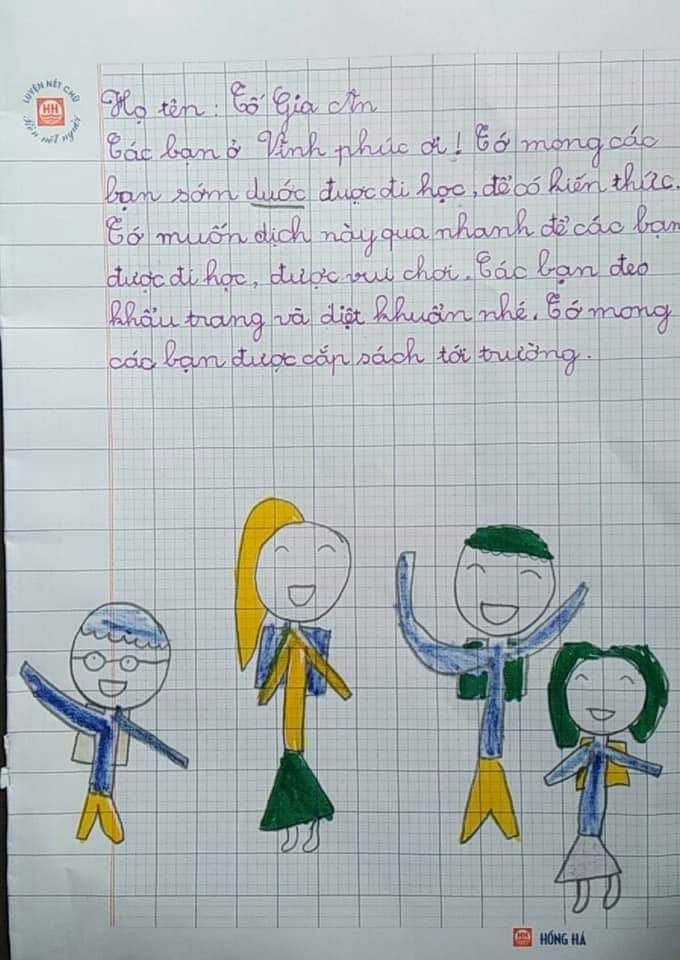 LUYỆN NÉT CHỮ
HH
Rèn nết người
Họ tên: Tố Gia An
Các bạn ở Vĩnh phúc ơi! Tớ mong các
bạn sớm đước được đi học, để có kiến thức.
Tớ muốn dịch này qua nhanh để các bạn
được đi học, được vui chơi. Các bạn đeo
khẩu trang và diệt khuẩn nhé. Tớ mong
các bạn được cắp sách tới trường.
HH HỒNG HÀ